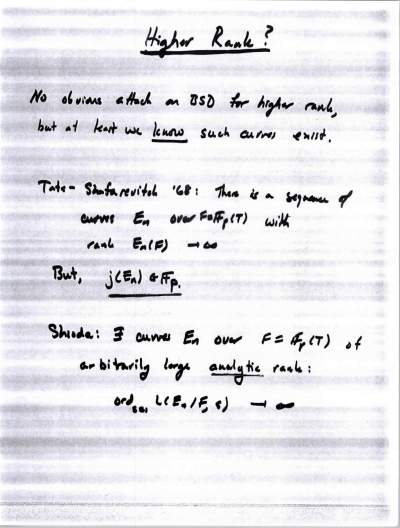 Higher Rank?
No obvious attack on BSD for higher rank,
but at least we know such curves exist.
Tate-Shafarevitch '68: There is a sequence of
curves Eₙ over F=𝔽ₚ(T) with
rank Eₙ(F) → ∞
But, j(Eₙ) ∈ 𝔽ₚ.
Shioda: ∃ curves Eₙ over F = 𝔽ₚ(T) of
arbitrarily large analytic rank:
ord L(Eₙ/F, s) → ∞